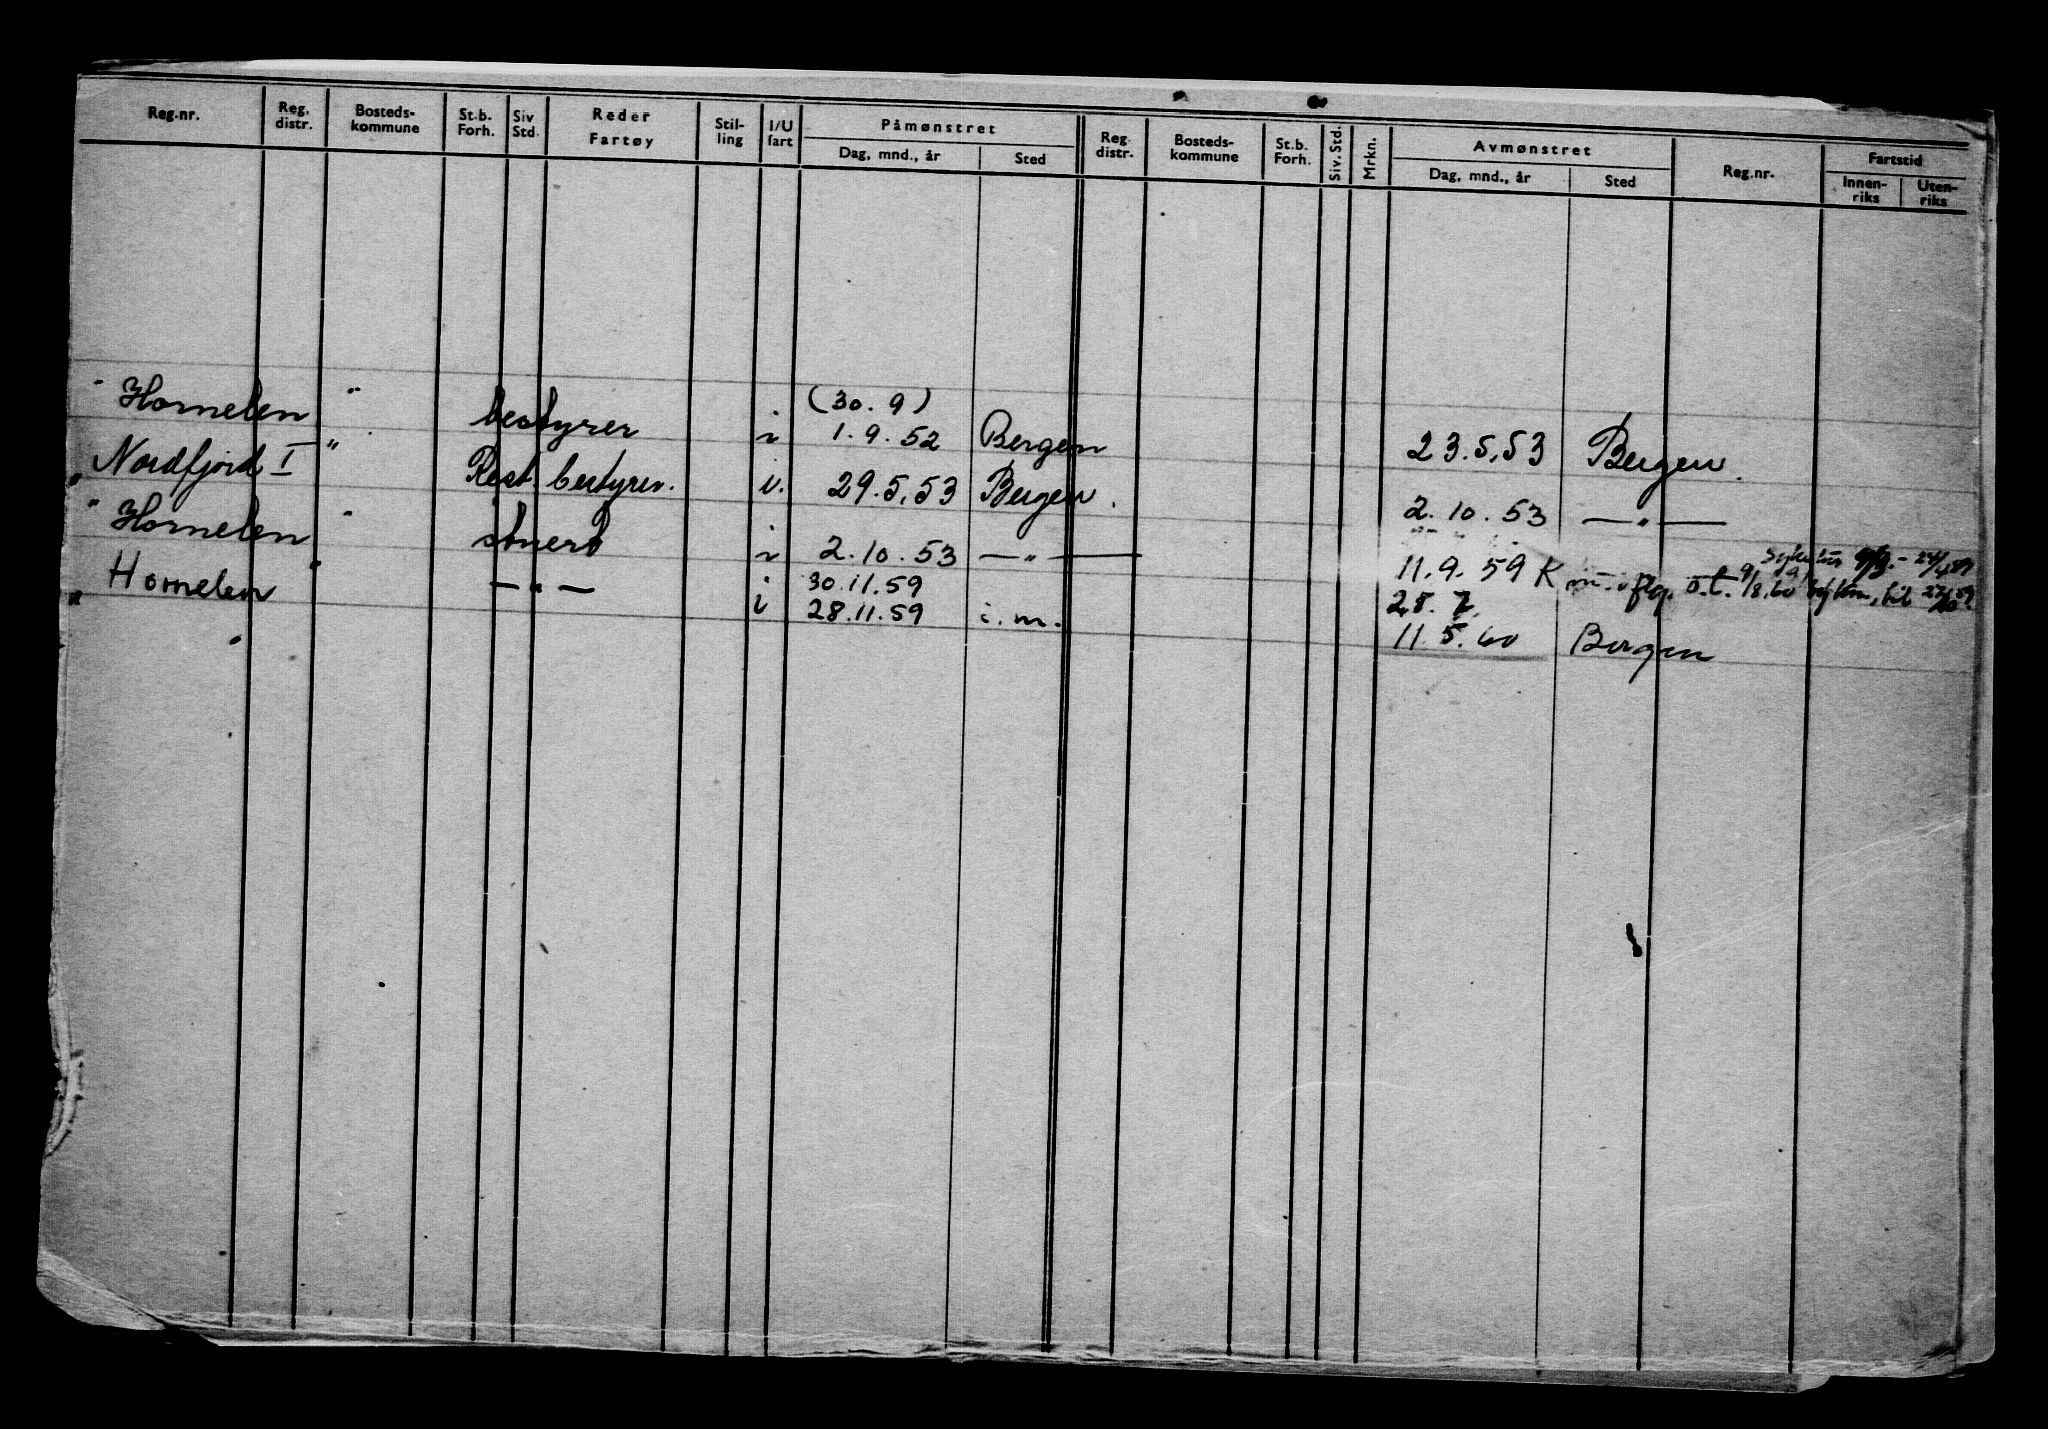 Reg.nr. Reg. distr. Bosteds-kommune St.b. Forh. Siv Std. Reder Fartøy Stil-ling I/U fart Påmønstret Dag, mnd., år Sted Reg. distr. Bosteds-kommune St.b. Forh. Siv. Std. Mrkn. Avmønstret Dag, mnd., år Sted Reg.nr. Fartstid Innen-riks Uten-riks
(30.9)
" Hornelen " bestyrer i 1.9.52 Bergen 23.5.53 Bergen.
" Nordfjord I " Rest. bestyrer. i. 29.5.53 Bergen. 2.10.53 — " —
" Hornelen " stuert i 2.10.53 — " — 11.9.59
" Hornelen " — " — i 30.11.59
i 28.11.59 i.m. 11.5.60 Bergen